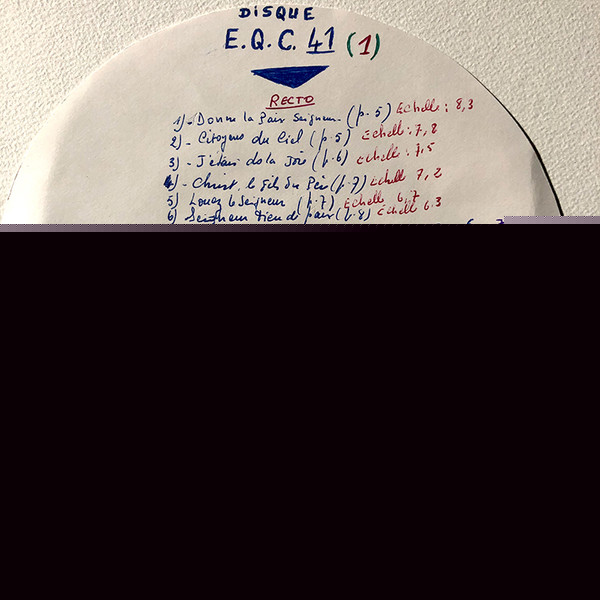 DISQUE
E.Q.C. 41 (1)
RECTO
1)- Donne la Paix Seigneur (p.5) Echelle: 8,3
2)- Citoyens du Ciel (p.5) Echelle: 7,8
3)- J'étais ds la Joie (p.6) Echelle: 7,5
4)- Christ, le fils du Père (p.7) Echelle 7,2
5) Louez le Seigneur (p.7) Echelle 6,7
6) Seigneur Dieu de paix (p.8) Echelle 6.3